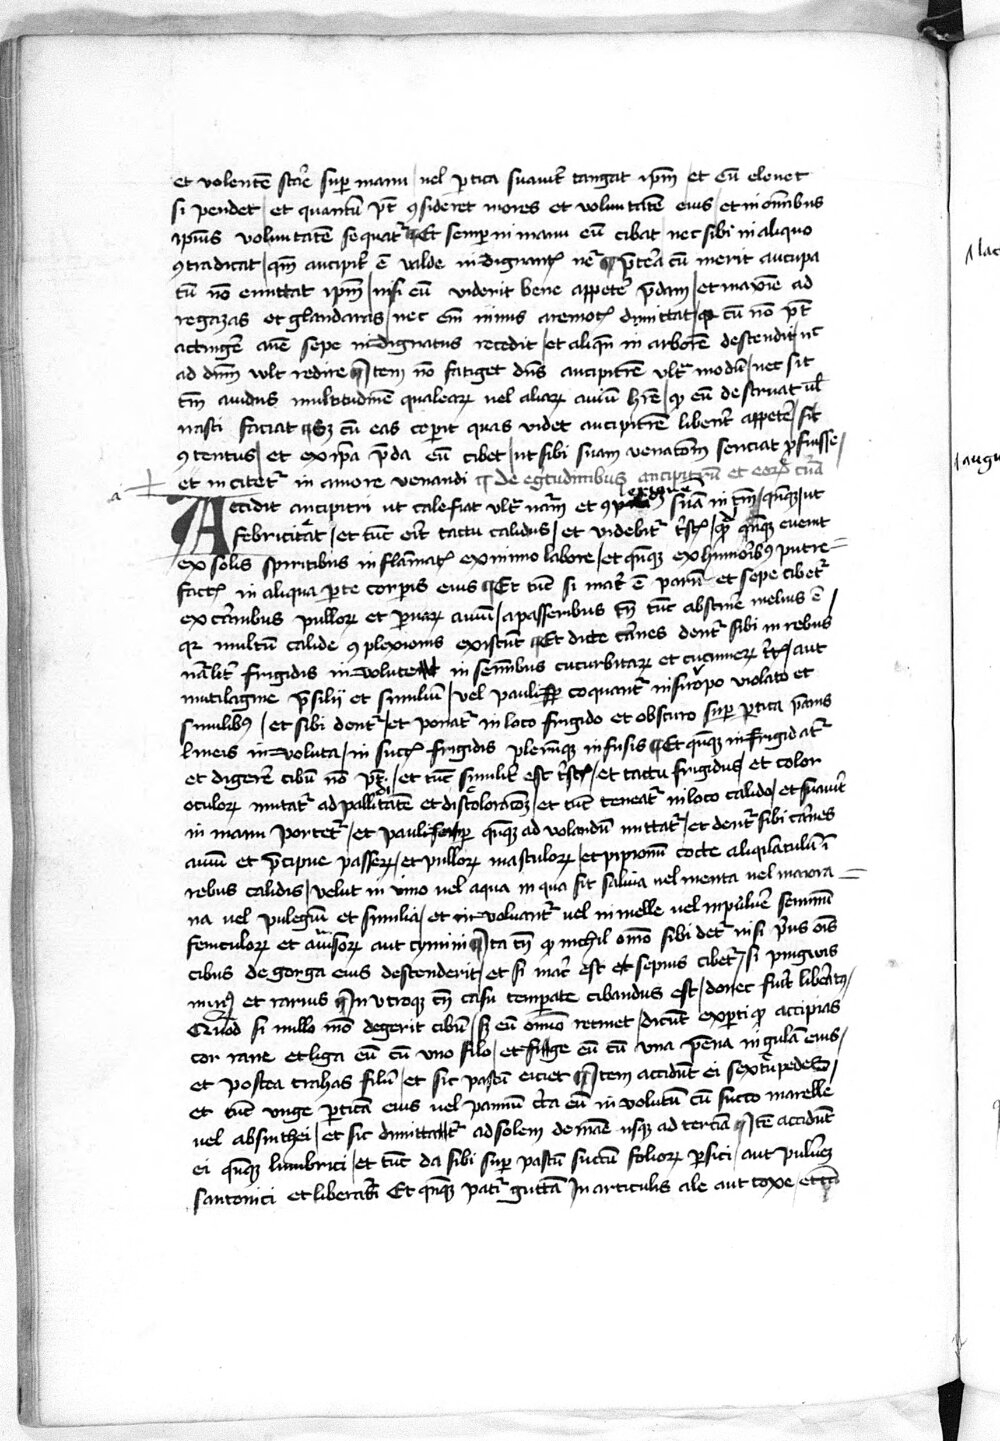 et volentē stare sup manu / vel ptica suavit tangat ipm / et eū elevet
si pendet / et quantū pt 9sideret mores et voluntatē eius / et in oībus
ipius voluntatē sequat ¶ Et semp in manu eū cibat / nec sibi in aliquo
9tradicat / qm ancipit ē valde indignant ¶ pterea cū inerit aucupa
tū nō emittat ipm / nisi eū viderit bene appetere pdam / et maxīe ad
regazas et glandaras / nec em nimis a remot dimittat / q cū nō pt
attingere avē sepe indignatus recedit / et aliqn in arborē descendit / nc
ad dnm vult redire ¶ Item nō fatiget dns ancipitrē ult modū / nec sit
tm avidus multitudinē qualear vel aliar aviū hre / q eū destruat vl
nasci faciat ¶ Sz cū eas ceperit quas videt ancipitrē libent appetere / sit
9tentus / et ex ipa pda eū cibet / ut sibi suam venatom senciat pfuisse /
et incitet in amore venandi ¶ de egritudinibus ancipitrū et eor cura
a
Accidit ancipitri ut calefiat ult nam et suā in tm / qnqz / ut
febricitat / et tūc erit tactu calidus / et videbit trist / qnqz evenit
ex solis spiritibus inflāmat ex nimio labore / et qnqz ex humoribz putre=
fact in aliqua pte corpis eius ¶ Et tūc si mac ē parū et sepe cibet
ex carnibus pullor et pvar aviū / a passeribus tn tūc abstinere melius ē /
qr multū calide 9plexionis existūt ¶ Et dicte carnes dent sibi in rebus
nālit frigidis involute in seminibus cucurbitar et cucumer / aut
mutilagine psilii et similiū / vel paulisp coquant in siropo violato et
similibz / et sibi dent / et ponat in loco frigido et obscuro sup ptica pannis
lineis involuta / in succ frigidis plerūqz infusis ¶ Et qnqz infrigidat
et digerere cibū nō pt / et tūc similit est trist / et tactu frigidus / et color
oculor mutat ad palliditatē et discoloracōz / et tūc teneat in loco calido / et suavit
in manu portet / et paulisp qnqz ad volandū mittat / et dent sibi carnes
aviū et pcipue passer / et pullor masculor / et pipionū cocte aliqilatulū ī
rebus calidis / velut in vino vel aqua in qua sit salvia vel menta vel maiora=
na vel pulegiū et similia / et involvant vel in melle vel in pulvere seminū
feniculor et anisor aut cymini ¶ Ita tn q nichil omo sibi det nisi pus ois
cibus de gorga eius descenderit / et si mac est et sepius cibet / si pinguis
minus et rarius ¶ In utroqz tn casu temperate cibandus est / donec fuit liberatus /
Quod si nullo mō degerit cibū / sz eū omo retinet / dicūt expti q accipias
cor rane et liga eū cū uno filo / et fige eū cū una penna in gulā eius /
et postea trahas filū / et sic pastū eiciet ¶ Item accidūt ei sextūpedes /
et tūc unge pticā eius vel pannū circa eū involutū cū succo marelle
vel absinthei / et sic dimittat ad solem de māe usqz ad terciā ¶ Itē accidūt
ei qnqz lumbrici / et tūc da sibi sup pastū succū folior psici / aut pulverez
santonici et liberabit Et qnqz patit guttā in articulis ale aut coxe / et tūc